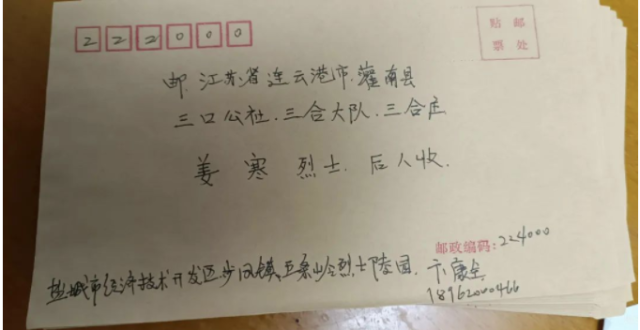 222000
贴邮
票处
邮.江苏省连云港市.灌南县
三口公社.三合大队.三合庄
姜寒烈士.后人收.
邮政编码:224000
盐城市经济技术开发区步凤镇五条岭烈士陵园.卞康全
18962000466